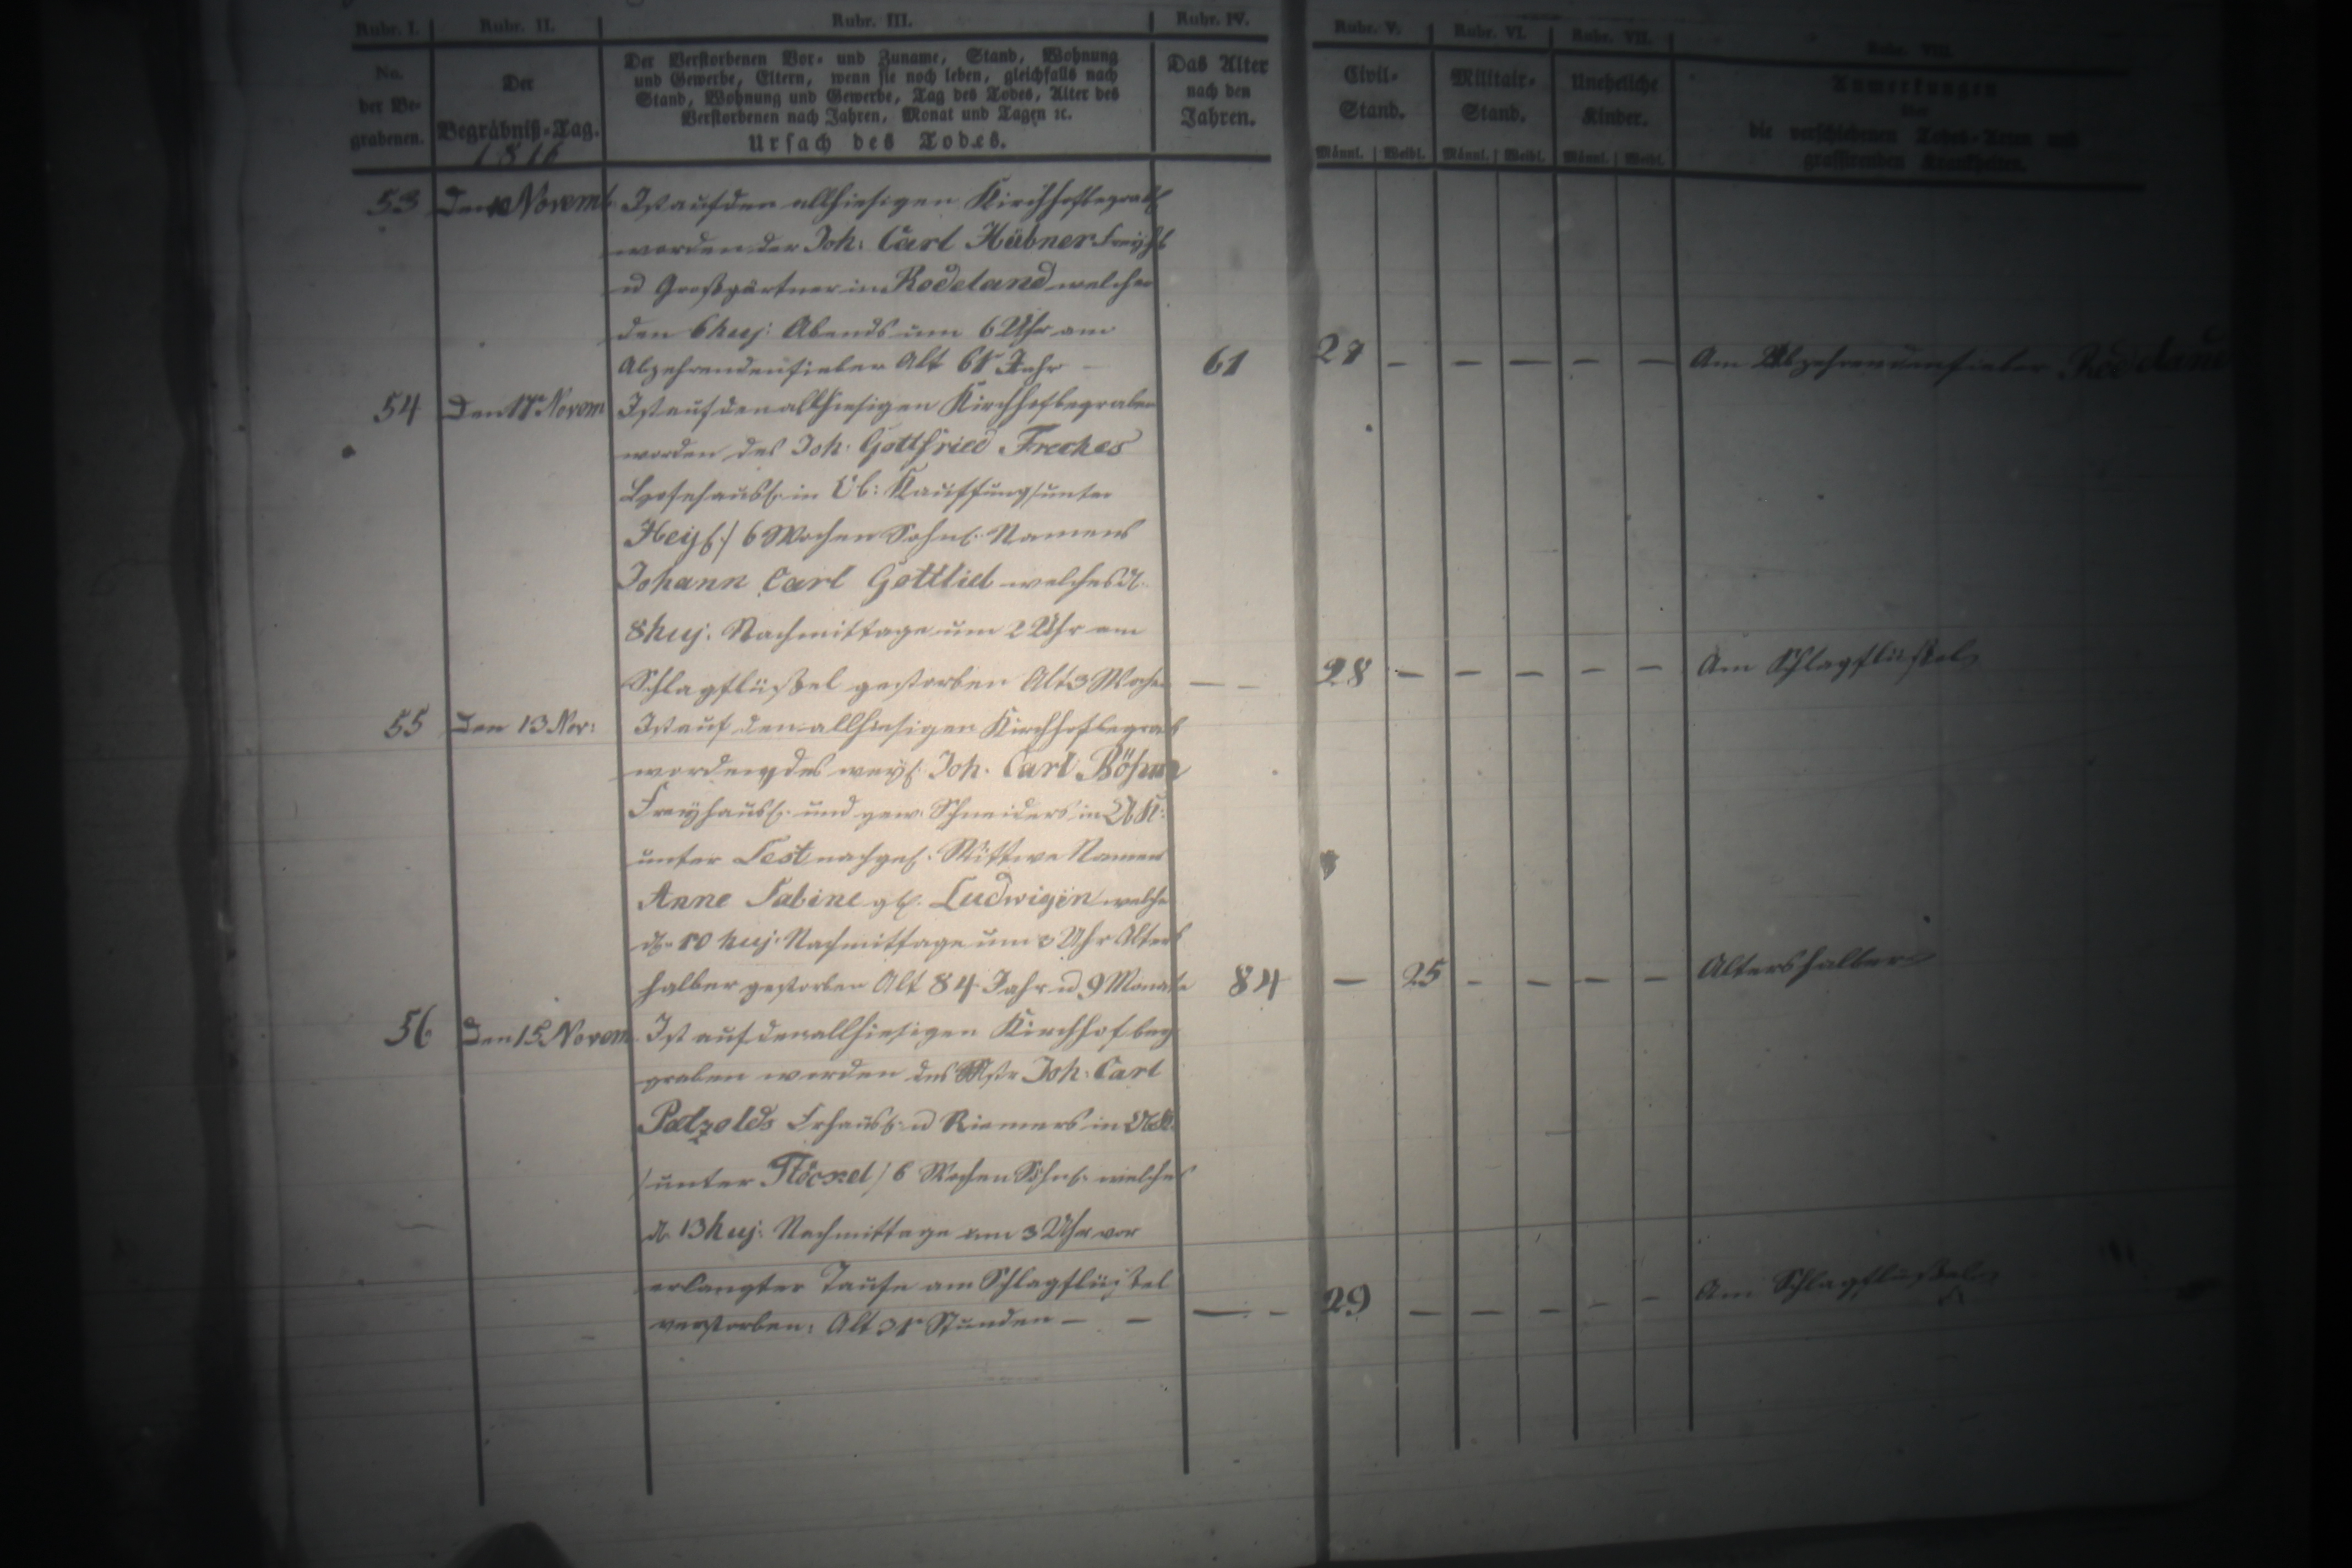 Rubr. I. Rubr. II. Rubr. III. Rubr. IV. Rubr. V. Rubr. VI. Rubr. VII. Rubr. VIII.
No. der Be- grabenen.
Der Begräbniß-Tag. 1816
Der Verstorbenen Vor- und Zuname, Stand, Wohnung
und Gewerbe, Eltern, wenn sie noch leben, gleichfalls nach
Stand, Wohnung und Gewerbe, Tag des Todes, Alter des
Verstorbenen nach Jahren, Monat und Tagen ꝛc.
Ursach des Todes.
Das Alter nach den Jahren.
Civil- Stand. Männl. Weibl.
Militair- Stand. Männl. Weibl.
Uneheliche Kinder. Männl. Weibl.
Anmerkungen
über
die verschiedenen Todes-Arten und
grassirenden Krankheiten.
53 Den Novemb. Ist auf den allhiesigen Kirchhof begrab
worden der Joh: Carl Hübner
u Großgärtner in Rodeland welcher
den 6 huj: Abends um 6 Uhr am
Abzehrendenfieber Alt 61 Jahr — 61 27 — — — — — Am Abzehrendenfieber Rodeland
54 Den Novem Ist auf den allhiesigen Kirchhof begraben
worden des Joh. Gottfried Freches
in Ob: Kauffung /unter
6 Wochen Söhnl. Namens
Johann Carl Gottlieb welches d.
8 huj: Nachmittage um 2 Uhr am
Schlagflüßel gestorben Alt 3 Wochen — — 28 — — — — — Am Schlagflüßel
55 Den 13 Nov: Ist auf den allhiesigen Kirchhof begrab
worden des weyl. Joh. Carl Böhm
Freyhäusl. und gew. Schneiders in
unter nachgel. Wittwe Namens
Anne Sabine geb. Ludwigin welche
d. 10 huj. Nachmittage um 3 Uhr Alters
halber gestorben Alt 84 Jahr u 9 Monate 84 — 25 — — — — Altershalber
56 Den 15 Novem. Ist auf den allhiesigen Kirchhof be
graben worden des Mstr Joh: Carl
Patzolds u Riemers in
/unter Stöckel/ 6 Wochen Söhnl. welches
d. 13 huj: Nachmittage um 3 Uhr vor
erlangter Taufe am Schlagflüßel
verstorben: Alt Stunden — — — — 29 — — — — — Am Schlagflüßel